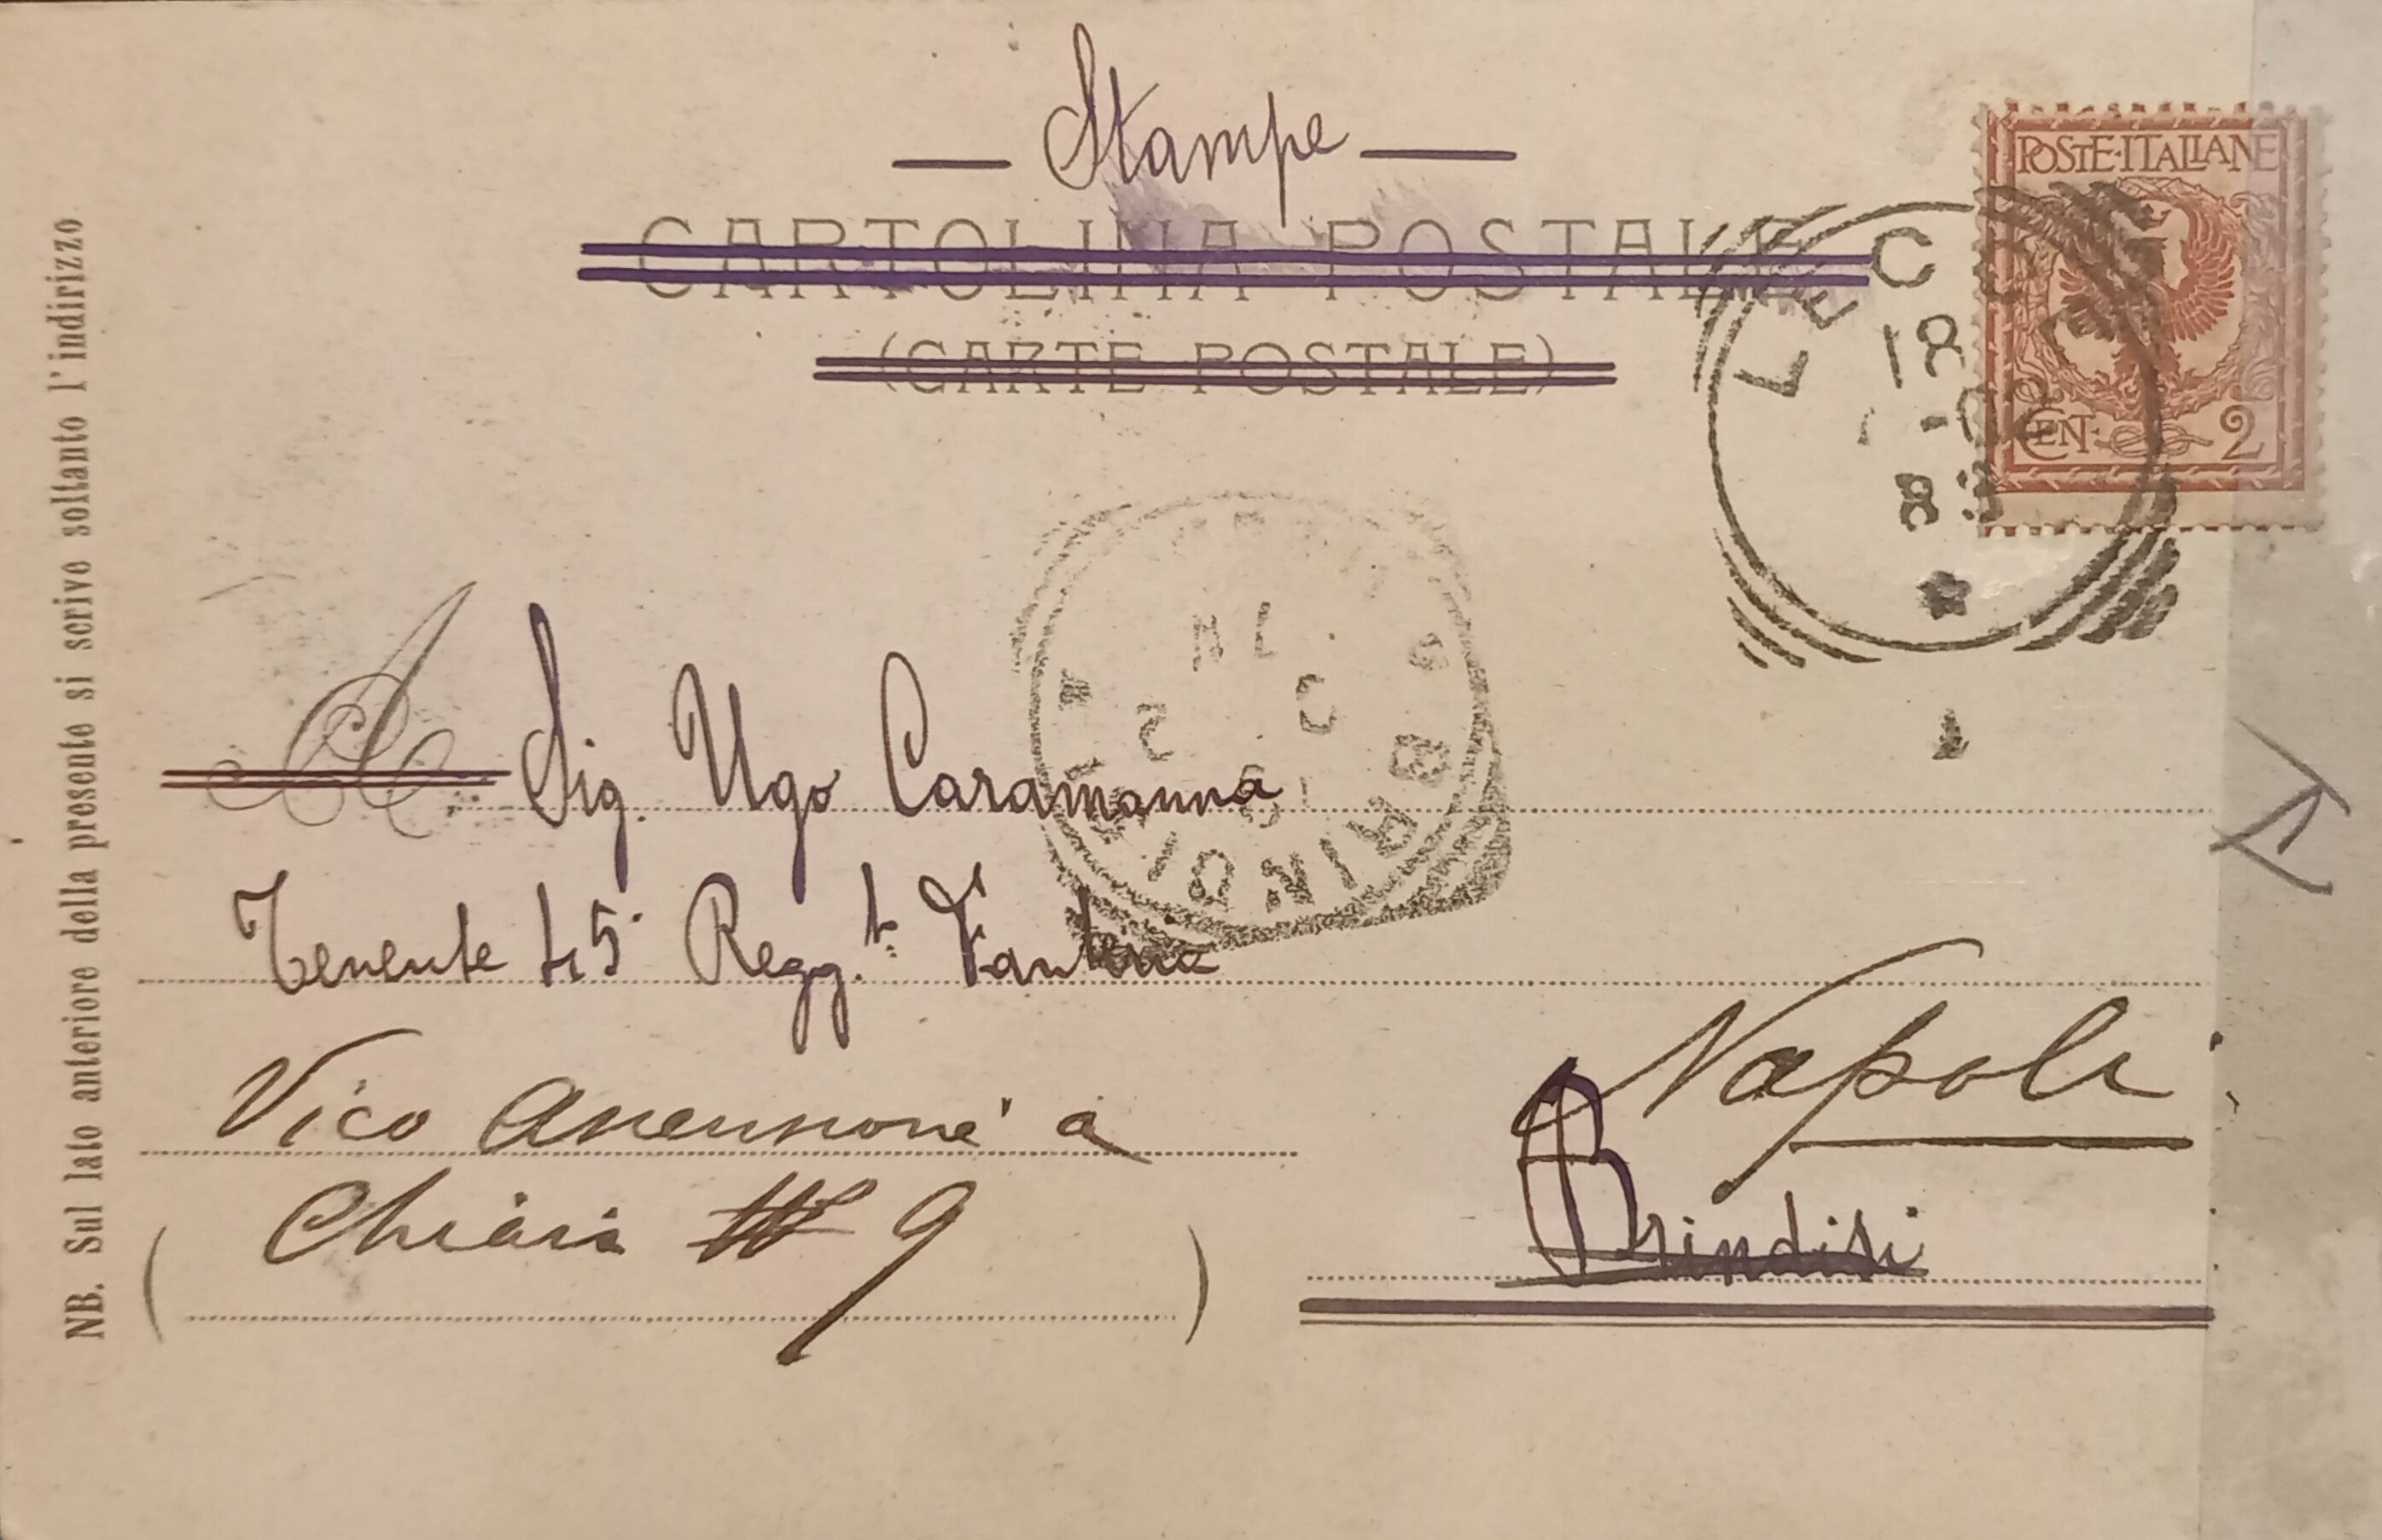 Stampe
CARTOLINA POSTALE
(CARTE POSTALE)
POSTE·ITALIANE
CEN. 2
LECCE
18
BRINDISI
A Sig. Ugo Caramanna
Tenente 45 Regg.to Fanteria
Napoli
Vico a
Brindisi
9
NB. Sul lato anteriore della presente si scrive soltanto l'indirizzo